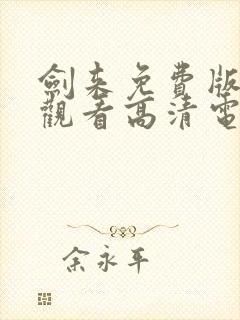 劍来免費版
觀看高清電
余永平